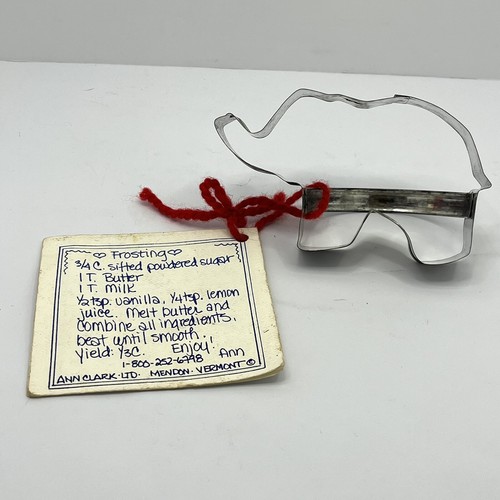 ♡ Frosting ♡
3/4 C. sifted powdered sugar
1 T. Butter
1 T. Milk
1/2 tsp. vanilla, 1/4 tsp. lemon
juice. Melt butter and
combine all ingredients,
beat until smooth.
yield: 1/3 C. Enjoy! Ann
1-800-252-6798
ANN CLARK·LTD. MENDON·VERMONT ©